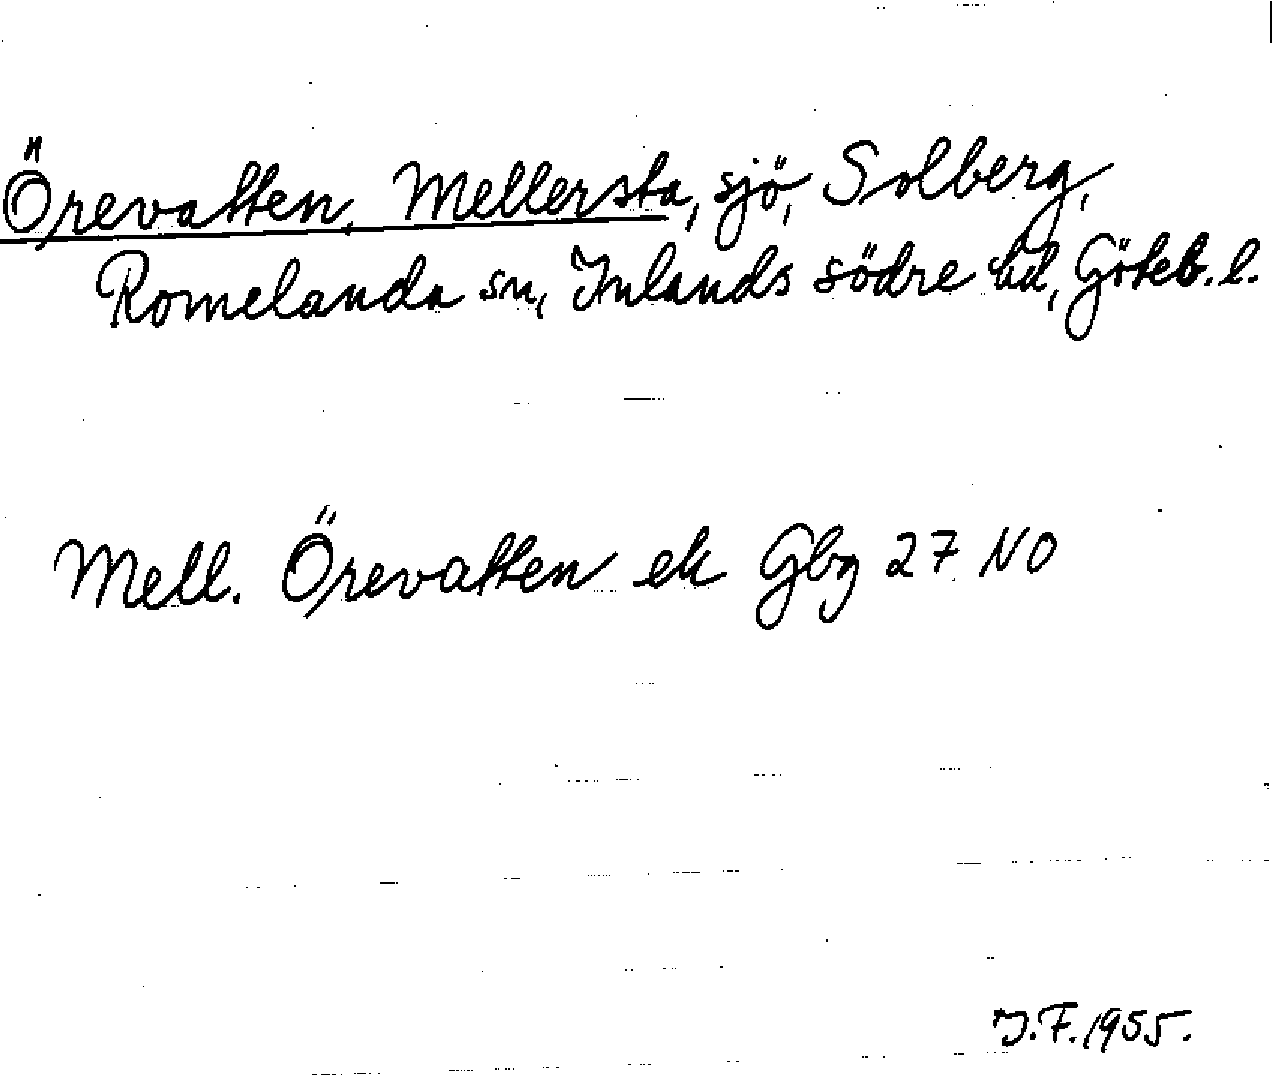 Örevatten, Mellersta, sjö, Solberg,
Romelanda sn, Inlands södre hd, Göteb. l.
Mell. Örevatten ek Gbg 27 NO
J.F. 1955.